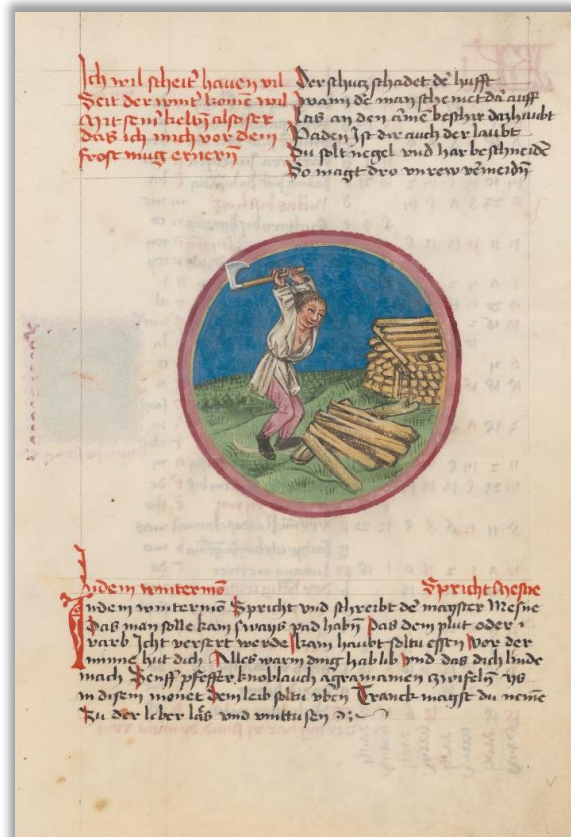 Ich wil scheit hauen vil
Seit der wint komē wil
Mit seinr keltn also ser
das ich mich vor dem
frost mug ernern
Der schucz schadet dē hufft
Wann dē man schemet dar auff
Las an den arme beschir dashaubt
Paden Ist dir auch der laubt
Du solt negel vnd har beschneidē
So magt dro vnrew vermeidn
In dem wintermō
Spricht Mesue
In dem wintermō Spricht vnd schreibt dē mayster Mesue
Das man solle kain sways pad habn Das dem plut oder
varb Icht versert werde kain haubt soltu essen Vor der
minne hut dich Alles warm ding hab lib vnd das dich linde
mach Senff pfeffer knoblauch agramanien zwifeln ys
in disem monet Dem leib soltu vben Tranck magst du nemē
Zu der leber las vnd vinttusen